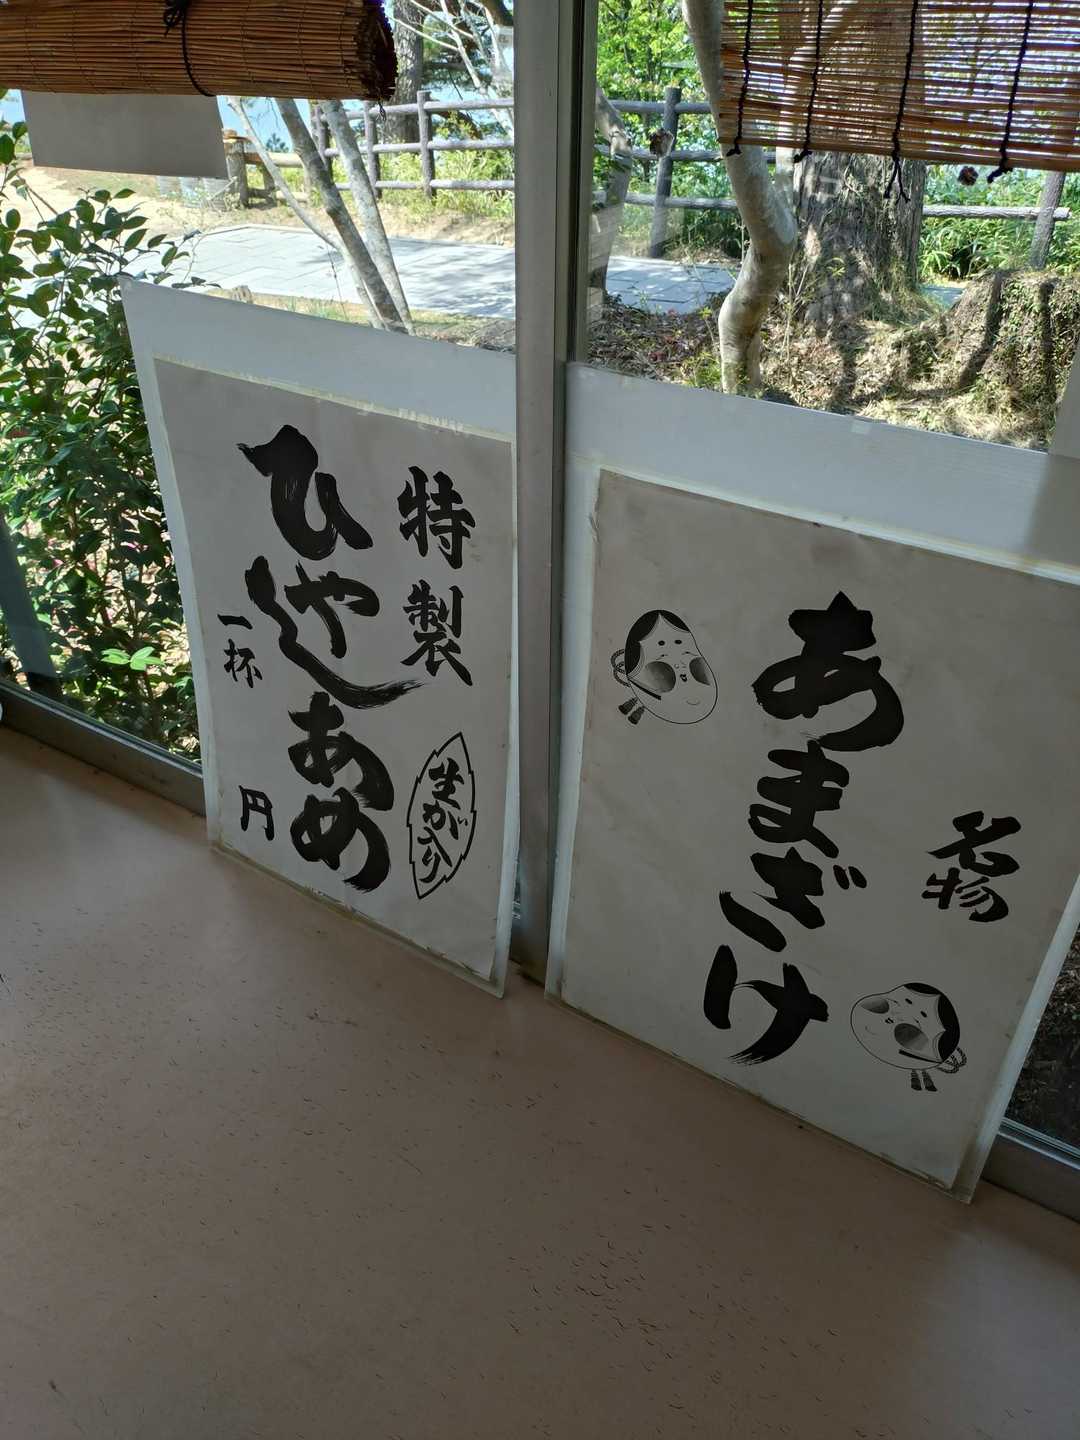 特製
ひやしあめ
生が入り
一杯
円
名物
あまざけ